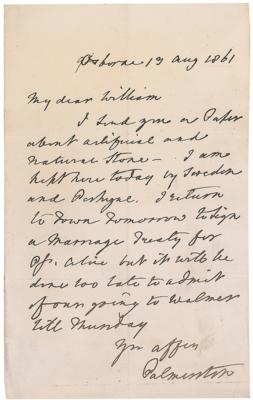 Osborne 13 Aug 1861
My dear William
I send you a Paper
about artificial and
Natural Stone – I am
kept here today by Sweden
and
I return
to Town Tomorrow to sign
a Marriage Treaty for
Pss. Alice but it will be
done too late to admit
of our going to Walmer
till Thursday
Yrs affly
Palmerston